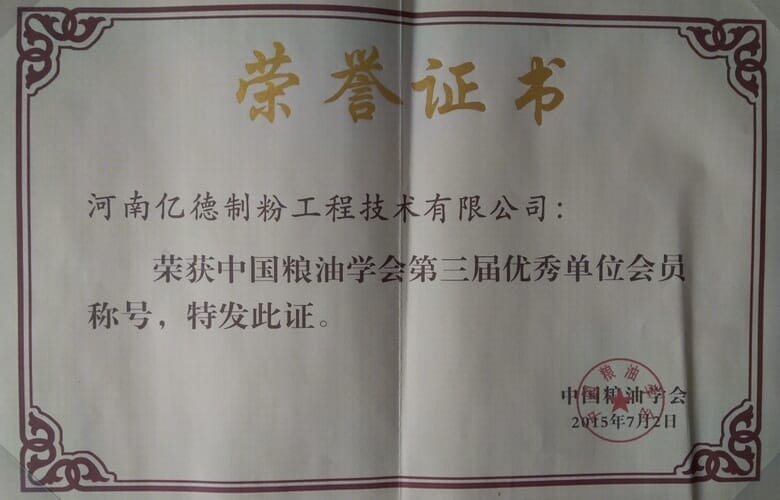 荣誉证书
河南亿德制粉工程技术有限公司：
荣获中国粮油学会第三届优秀单位会员
称号，特发此证。
中国粮油学会
2015年7月2日
中国粮油学会